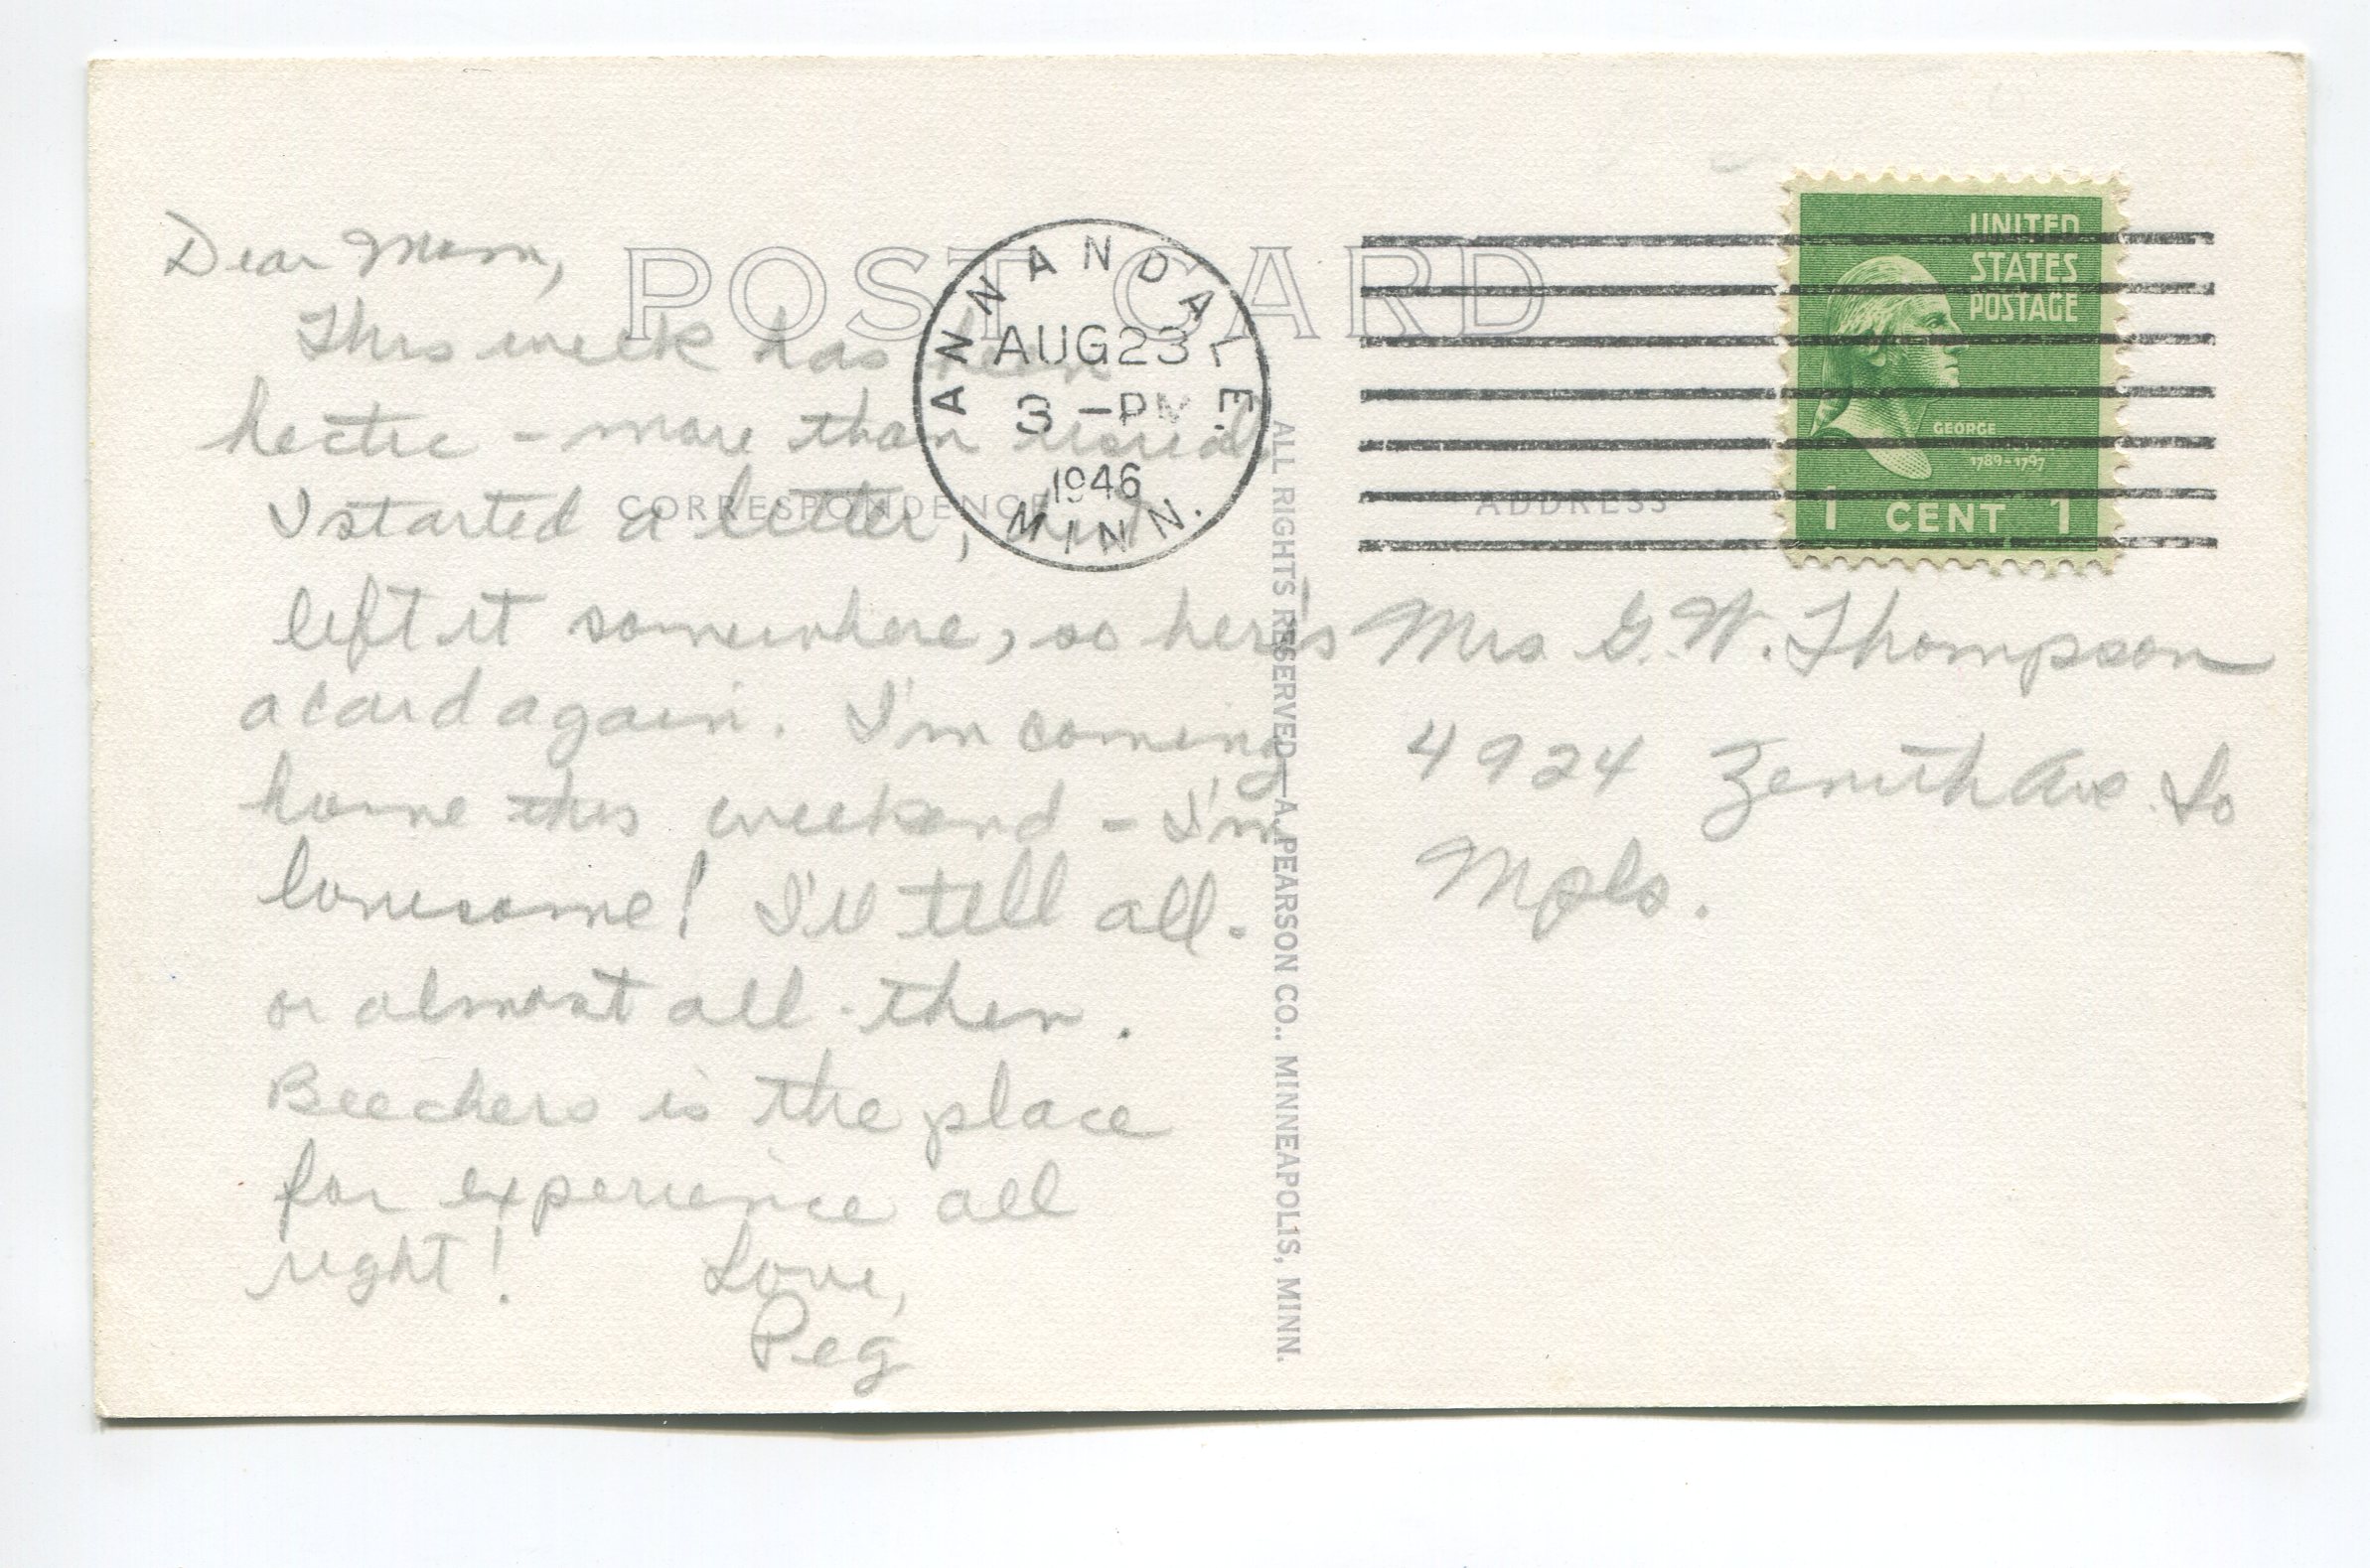 POST CARD
ANNANDALE.
AUG 23
3 - PM
1946
MINN.
UNITED
STATES
POSTAGE
GEORGE
1789-1797
1 CENT 1
CORRESPONDENCE
ADDRESS
Dear Mom,
This week has been
hectic - more than usual.
I started a letter, and
left it somewhere, so her's
a card again. I'm coming
home this weekend - I'm
lonesome! I'll tell all -
or almost all - then.
Beechers is the place
for experience all
right!
Love,
Peg
ALL RIGHTS RESERVED—A. PEARSON CO., MINNEAPOLIS, MINN.
Mrs G. W. Thompson
4924 Zenith Ave So
Mpls.